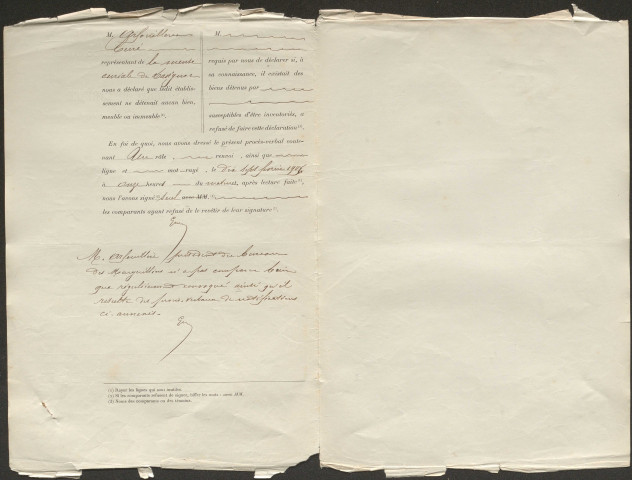 M.
Curé
représentant de la mense
curiale de
nous a déclaré que ledit établis-
sement ne détenait aucun bien,
meuble ou immeuble
M.
requis par nous de déclarer si, à
sa connaissance, il existait des
biens détenus par
susceptibles d'être inventoriés, a
refusé de faire cette déclaration
En foi de quoi, nous avons dressé le présent procès-verbal conte-
nant rôle, renvoi, ainsi que
ligne et mot rayé, le dix sept février 1906
à onze heures du matin, après lecture faite,
nous l'avons signé seul avec MM.
les comparants ayant refusé de le revêtir de leur signature
M. président du bureau
des Marguilliers n'a pas comparu bien
que régulièrement convoqué ainsi qu'il
résulte des procès verbaux de notifications
ci annexés.
(1) Rayer les lignes qui sont inutiles.
(2) Si les comparants refusent de signer, biffer les mots : avec MM.
(3) Noms des comparants ou des témoins.